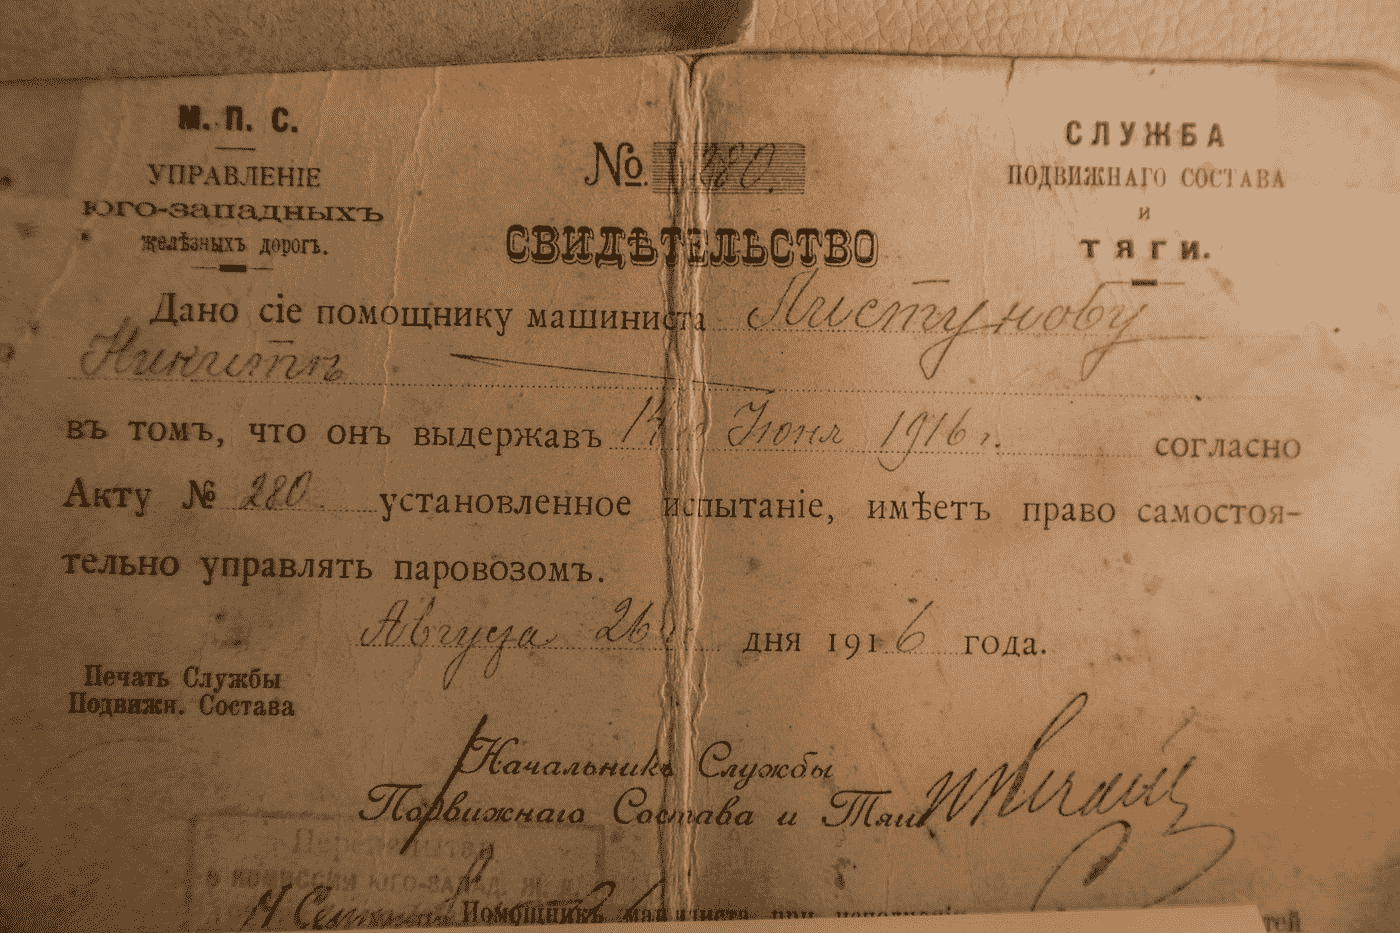 М. П. С.
УПРАВЛЕНІЕ
ЮГО-ЗАПАДНЫХЪ
желѣзныхъ дорогъ.
СЛУЖБА
ПОДВИЖНАГО СОСТАВА
И
ТЯГИ.
№ 280.
СВИДѢТЕЛЬСТВО
Дано сіе помощнику машиниста Листунову
Никитѣ
въ томъ, что онъ выдержавъ 14го Іюня 1916 г. согласно
Акту № 280 установленное испытаніе, имѣетъ право самостоя-
тельно управлять паровозомъ.
Августа 26 дня 1916 года.
Печать Службы
Подвижн. Состава
Начальникъ Службы
Подвижнаго Состава и Тяги
КОМИССИЯ ЮГО-ЗАПАД. Ж. Д.
14
Помощникъ машиниста при исполненіи